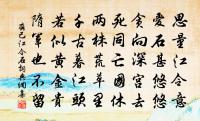 思量江令意
愛石甚悠悠
貪向深宮去
死同亡國休
兩株荒草里
千古暮江頭
若似黃金貴
隋軍也不留
齊己江令石